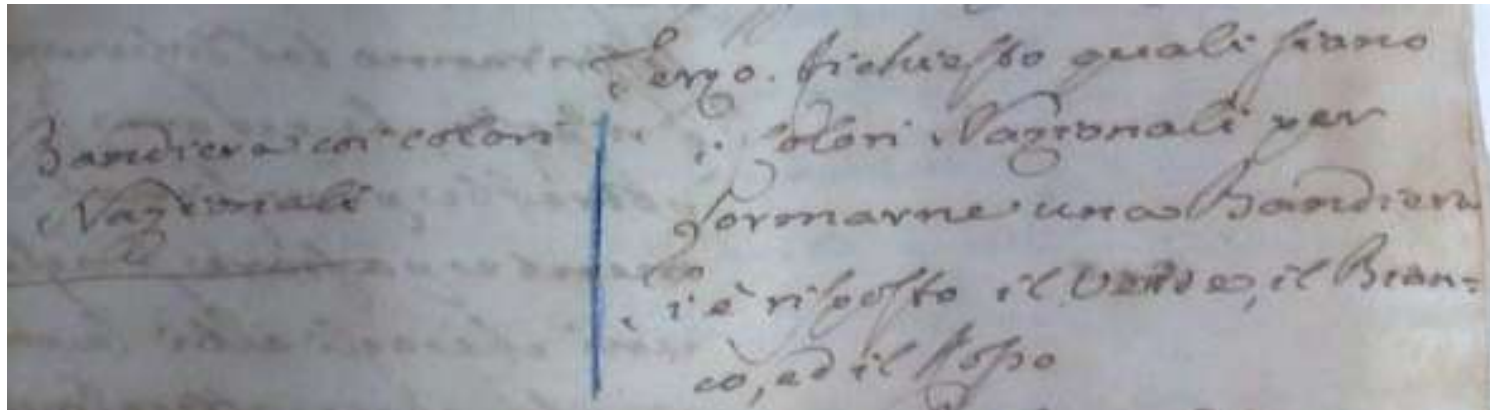 Bandiera coi colori
Nazionali
Terzo. Richiesto quali siano
i Colori Nazionali per
formarne una Bandiera
si è risposto il Verde, il Bian=
co, ed il Rosso